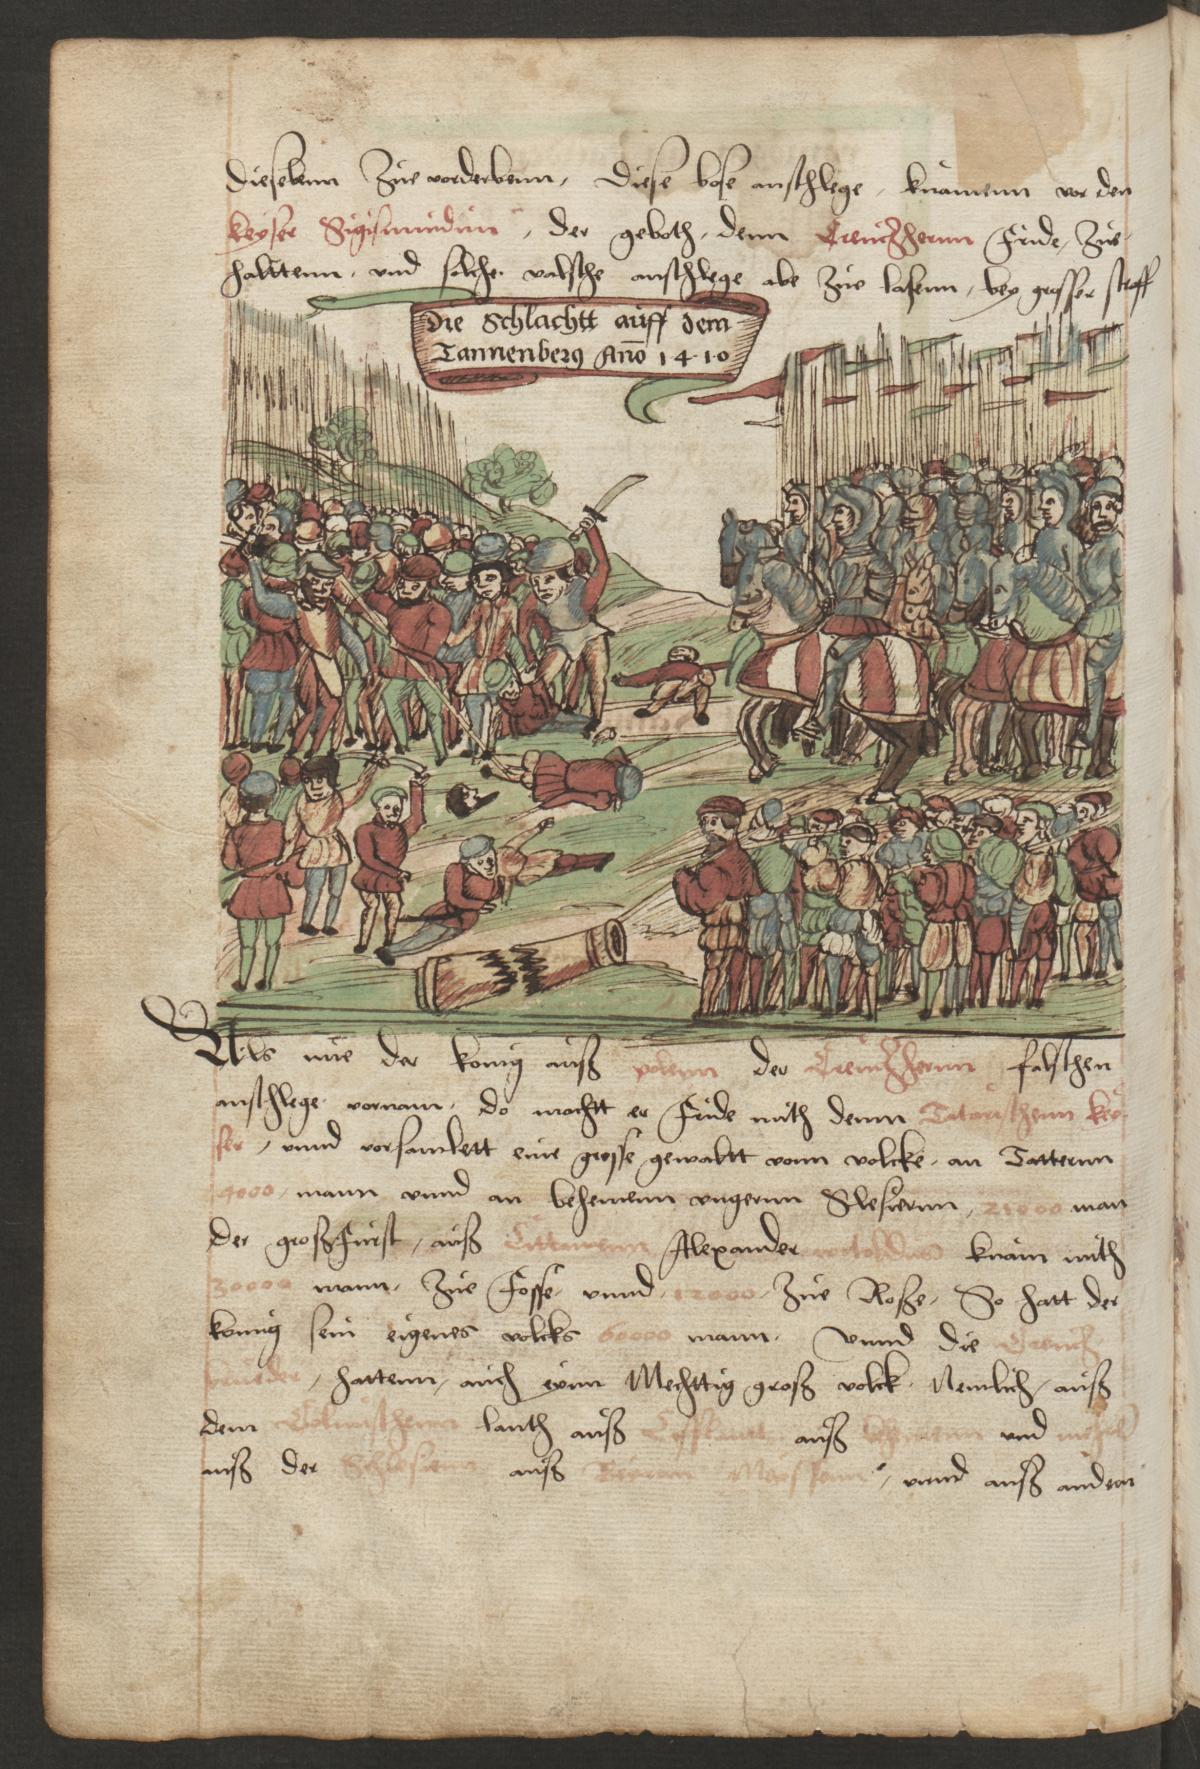 dieselbenn Zue vorderbenn, Diese bose anschlege, kuamenn vor den
keyser Sigismundum, der geboth, denn Creutzhernn Fride, Zue
haltenn, vnd solche valsche anschlege abe Zue lasenn, bey grosser straff
Die Schlachtt auff dem
Tannenberg Ano 1410
Als nue der konig auß polenn der Creutzhernn falschen
anschlege vornam, do machtt er Fride mith denn Tatarischenn key-
ser, vnnd vorsamlett eine grosse gewaltt vonn volcke, an Tatternn
4000, mann vnnd an behemenn vngernn Slesiernn, 21000 man
der großfurst, auß Littawenn Alexander witoldus kuam mith
30000 mann, Zue Fosse, vnnd 12000 Zue Roße, So hatt der
konig sein eigenes volcks 60000 mann, vnnd die Creutz
brueder, hattenn, auch eynn Mechttig groß volck, Nemlich, auß
dem Colmischenn lanth auß Eyfflantt auß vnd
auß der Schlesienn auß Meissenn, vnnd auß andern